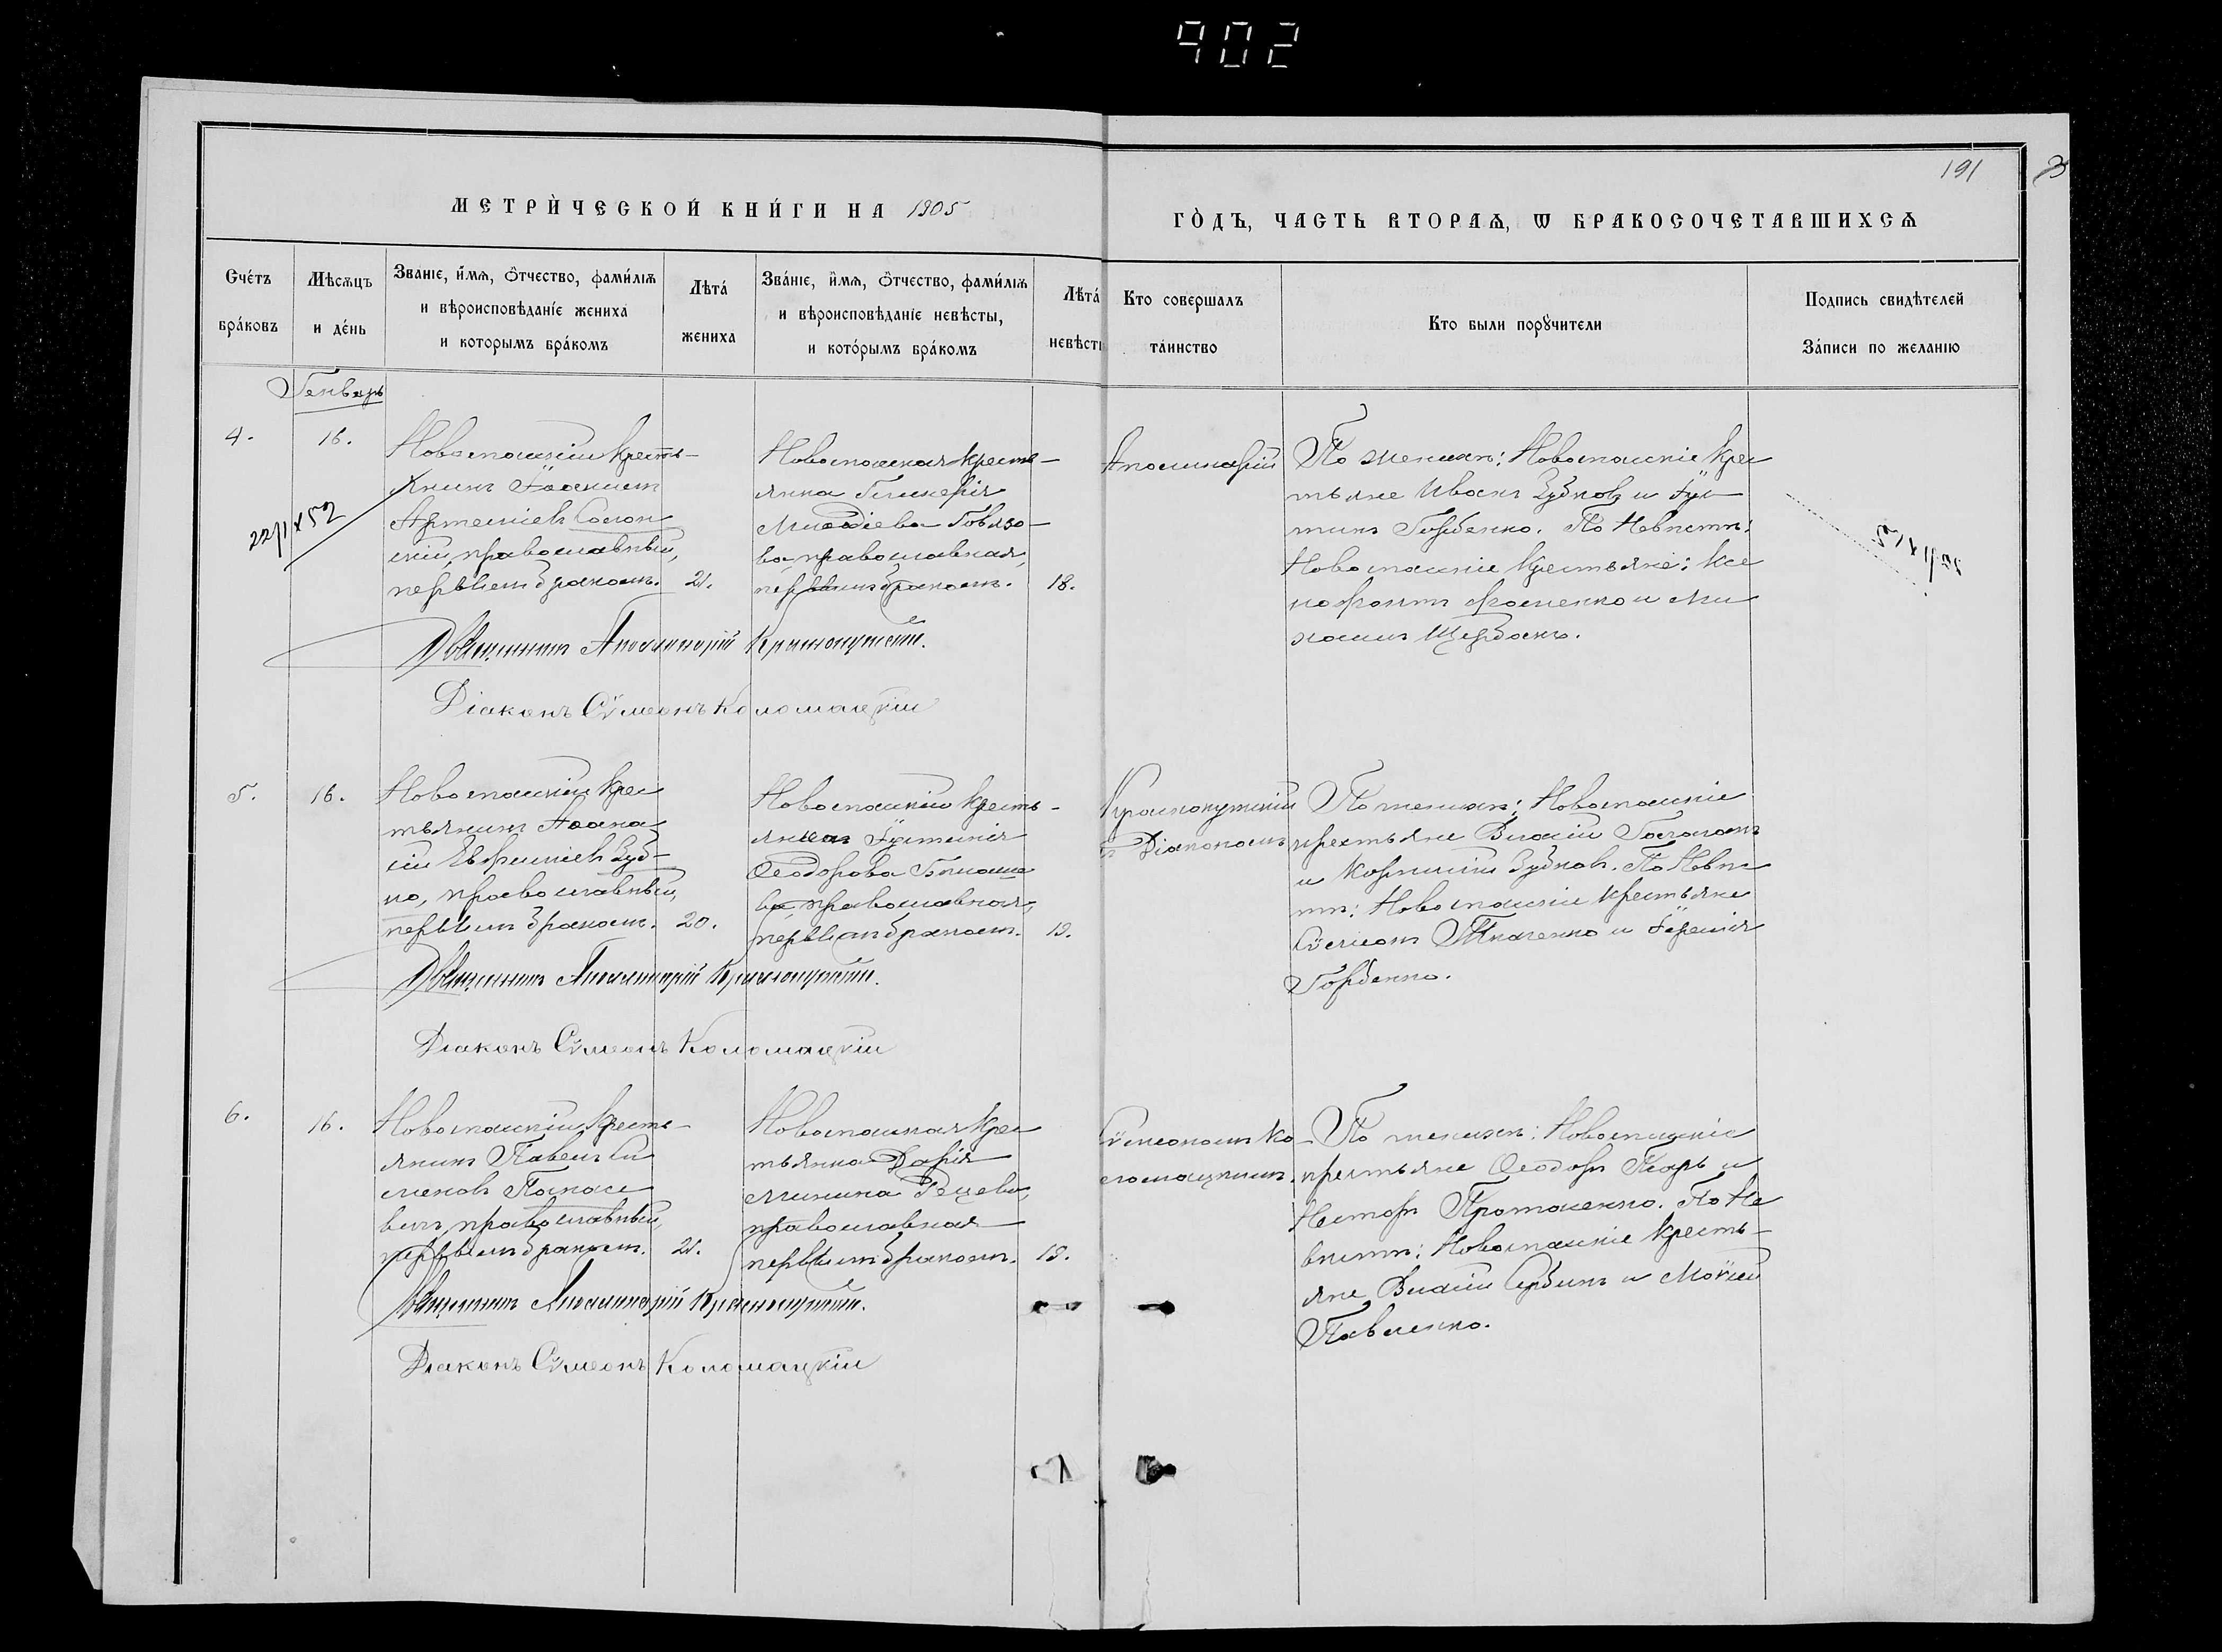 902
191
МЕТРИ́ЧЕСКОЙ КНИ́ГИ НА 1905
ГО́ДЪ, ЧАСТЬ ВТОРАѦ, Ѡ БРАКОСОЧЕТАВШИХСѦ
Счéтъ
брáковъ
Мѣсѧцъ
и дéнь
Званіе, и́мѧ, ѻ҆́тчество, фами́ліѧ
и вѣроисповѣданіе жениха
и которымъ брáкомъ
Лѣтá
жениха
Звáніе, и́мѧ, ѻ҆́тчество, фами́ліѧ
и вѣроисповѣданіе невѣсты,
и котóрымъ брáкомъ
Лѣтá
невѣсты
Кто совершалъ
тáинство
Кто были порꙋчители
Подпись свидѣтелей
Зáписи по желанію
Генварь
4.
16.
Новоспаскій кресть-
янинъ Іоакимъ
Артеміевъ
православный,
первымъ бракомъ.
21.
Новоспаская кресть-
янка Гликерія
Меѳодіева
православная,
первымъ бракомъ.
18.
Аполинарій
По женихѣ: Новоспаскіе крес
тьяне Иванъ Зубковъ и Іус
тинъ Горбенко. По Невѣстѣ:
Новоспаскіе крестьяне: Ксе
нофонтъ Фоменко и Ми
хаилъ Щербакъ.
22/IX52
Священникъ Аполинарій Краснокутскій.
Діаконъ Сѵмеонъ Коломацкій
5.
16.
Новоспаскій крес
тьянинъ Аѳана
сій Евфиміевъ Зуб-
ко, православный,
первымъ бракомъ.
20.
Новоспаскія кресть-
янка Іустинія
Ѳеодорова
православная,
первымъ бракомъ.
19.
Краснокутскій
съ Діакономъ
По женихѣ: Новоспаскіе
крестьяне Власій
и Корнилій Зубковъ. По Невѣс
тѣ: Новоспаскіе крестьяне
Сѵмеонъ Ткаченко и Іеремія
Горбенко.
Священникъ Аполинарій Краснокутскій.
Діаконъ Сѵмеонъ Коломацкій
6.
16.
Новоспаскій кресть-
янинъ Павелъ Си
меновъ Панасе
вичъ, православный,
первымъ бракомъ.
21.
Новоспаская крес
тьянка Дарія
Минина
православная
первымъ бракомъ.
18.
Сѵмеономъ Ко-
ломацкимъ.
По женихѣ: Новоспаскіе
крестьяне Ѳеодоръ и
Несторъ По Не
вѣстѣ: Новоспаскіе кресть-
яне Власій Сербинъ и Моѵсей
Павленко.
Священникъ Аполинарій Краснокутскій.
Діаконъ Сѵмеонъ Коломацкій